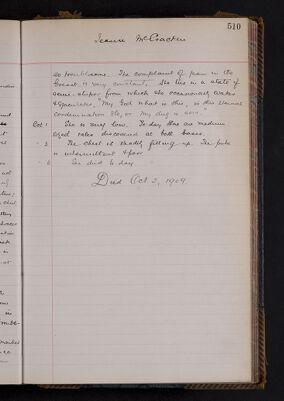 510
Jeanie McCracken
so troublesome. The complaint of pain in the
breast is very constant. She lies in a state of
semi-stupor from which she occasionally wakes
& ejaculates, "My God what is this, is this eternal
condemnation &c, or My leg is sore.
Oct 1 She is very low. To day there are medium
sized rales discovered at both bases.
" 2 The chest is steadily filling up. The pulse
is intermittent & poor
She died to day
Died Oct 2, 1909.